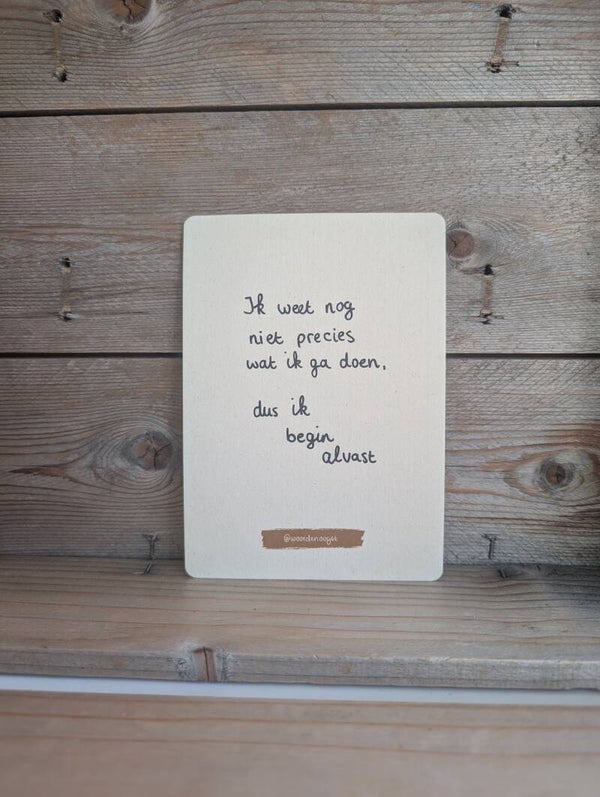 Ik weet nog
niet precies
wat ik ga doen,
dus ik
begin
alvast
@woordenoogst